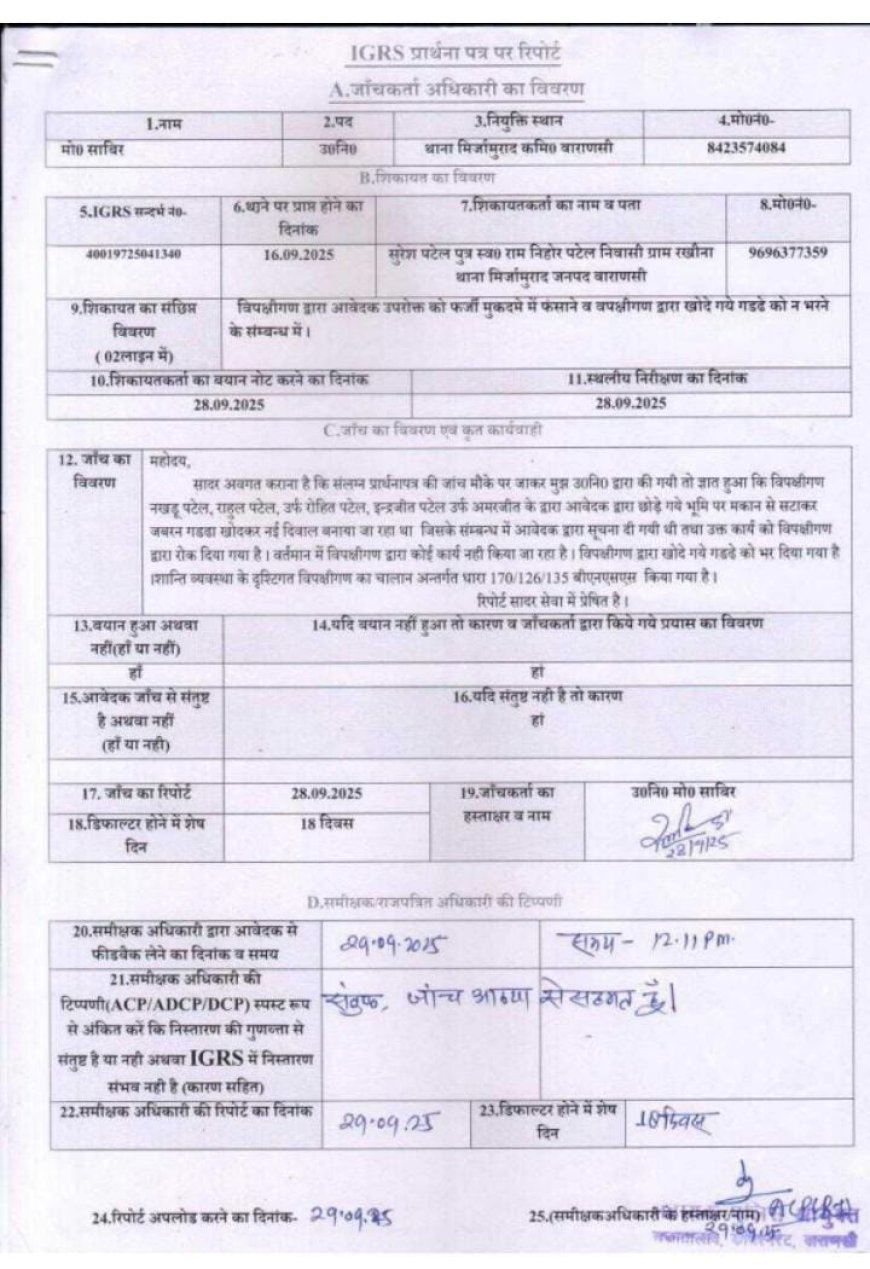 IGRS प्रार्थना पत्र पर रिपोर्ट
A.जाँचकर्ता अधिकारी का विवरण
1.नाम 2.पद 3.नियुक्ति स्थान 4.मो0नं0-
मो0 साबिर उ0नि0 थाना मिर्जामुराद कमि0 वाराणसी 8423574084
B.शिकायत का विवरण
5.IGRS सन्दर्भ नं0- 6.थाने पर प्राप्त होने का दिनांक 7.शिकायतकर्ता का नाम व पता 8.मो0नं0-
40019725041340 16.09.2025 सुरेश पटेल पुत्र स्व0 राम निहोर पटेल निवासी ग्राम रखौना 9696377359
थाना मिर्जामुराद जनपद वाराणसी
9.शिकायत का संछिप्त विपक्षीगण द्वारा आवेदक उपरोक्त को फर्जी मुकदमे में फंसाने व वपक्षीगण द्वारा खोदे गये गडढे को न भरने
विवरण के संम्बन्ध में ।
( 02लाइन में)
10.शिकायतकर्ता का बयान नोट करने का दिनांक 11.स्थलीय निरीक्षण का दिनांक
28.09.2025 28.09.2025
C.जाँच का विवरण एवं कृत कार्यवाही
12. जाँच का महोदय,
विवरण सादर अवगत कराना है कि संलग्न प्रार्थनापत्र की जांच मौके पर जाकर मुझ उ0नि0 द्वारा की गयी तो ज्ञात हुआ कि विपक्षीगण
नखडू पटेल, राहुल पटेल, उर्फ रोहित पटेल, इन्द्रजीत पटेल उर्फ अमरजीत के द्वारा आवेदक द्वारा छोड़े गये भूमि पर मकान से सटाकर
जबरन गडडा खोदकर नई दिवाल बनाया जा रहा था जिसके संम्बन्ध में आवेदक द्वारा सूचना दी गयी थी तथा उक्त कार्य को विपक्षीगण
द्वारा रोक दिया गया है । वर्तमान में विपक्षीगण द्वारा कोई कार्य नही किया जा रहा है । विपक्षीगण द्वारा खोदे गये गडढे को भर दिया गया है
।शान्ति व्यवस्था के दृश्टिगत विपक्षीगण का चालान अन्तर्गत धारा 170/126/135 बीएनएसएस किया गया है ।
रिपोर्ट सादर सेवा में प्रेषित है ।
13.बयान हुआ अथवा 14.यदि बयान नहीं हुआ तो कारण व जाँचकर्ता द्वारा किये गये प्रयास का विवरण
नहीं(हाँ या नहीं)
हाँ हां
15.आवेदक जाँच से संतुष्ट 16.यदि संतुष्ट नही है तो कारण
है अथवा नहीं हां
(हाँ या नही)
17. जाँच का रिपोर्ट 28.09.2025 19.जाँचकर्ता का उ0नि0 मो0 साबिर
18.डिफाल्टर होने में शेष 18 दिवस हस्ताक्षर व नाम
दिन 28/9/25
D.समीक्षक/राजपत्रित अधिकारी की टिप्पणी
20.समीक्षक अधिकारी द्वारा आवेदक से 29.09.2025 समय - 12.11 Pm.
फीडबैक लेने का दिनांक व समय
21.समीक्षक अधिकारी की
टिप्पणी(ACP/ADCP/DCP) स्पस्ट रूप जांच आख्या से सहमत हूँ।
से अंकित करें कि निस्तारण की गुणवत्ता से
संतुष्ट है या नही अथवा IGRS में निस्तारण
संभव नही है (कारण सहित)
22.समीक्षक अधिकारी की रिपोर्ट का दिनांक 29.09.25 23.डिफाल्टर होने में शेष 18 दिवस
दिन
24.रिपोर्ट अपलोड करने का दिनांक- 29.09.25 25.(समीक्षकअधिकारी के हस्ताक्षर/नाम)
29.09.25
वाराणसी